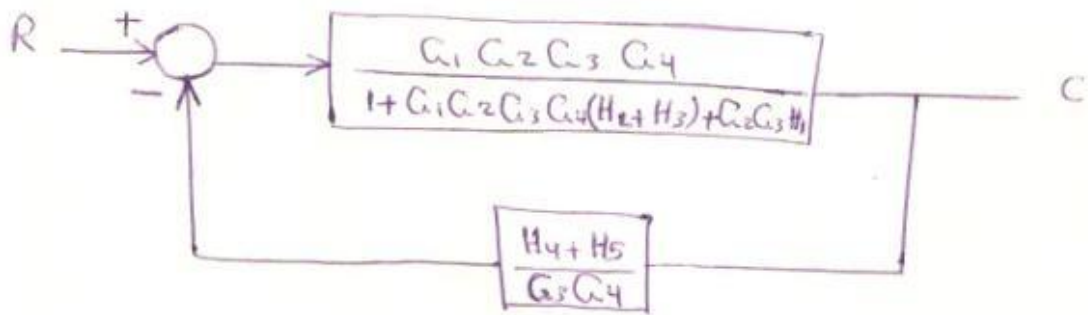 R + G₁ G₂ G₃ G₄
1 + G₁G₂G₃G₄(H₂+H₃)+G₂G₃H₁ C
−
H₄ + H₅
G₃G₄